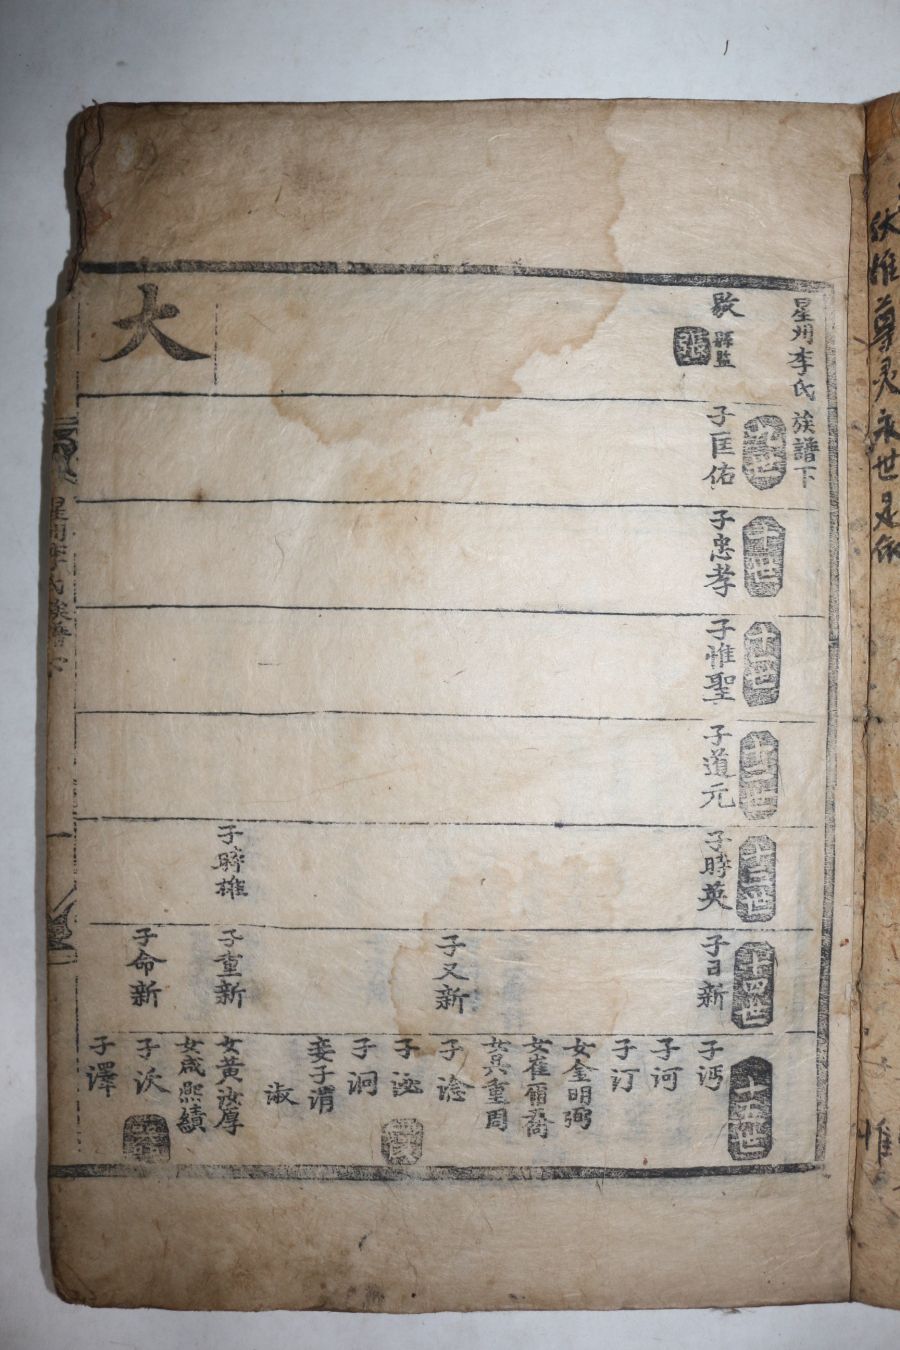 星州李氏族譜下
敭 縣監
子匡佑
十世
子忠孝
十一世
子惟聖
十二世
子道元
十三世
子時英
子時雄
十四世
子日新
子又新
子重新
子命新
十五世
子沔
子河
子汀
女金明弼
女崔爾喬
女吳重周
子淰
子泌
子洞
妾子渭
淑
女黃汝厚
女成熙績
子沃
子澤
大
星州李氏族譜下
一
惟尊灵永世是依
惟